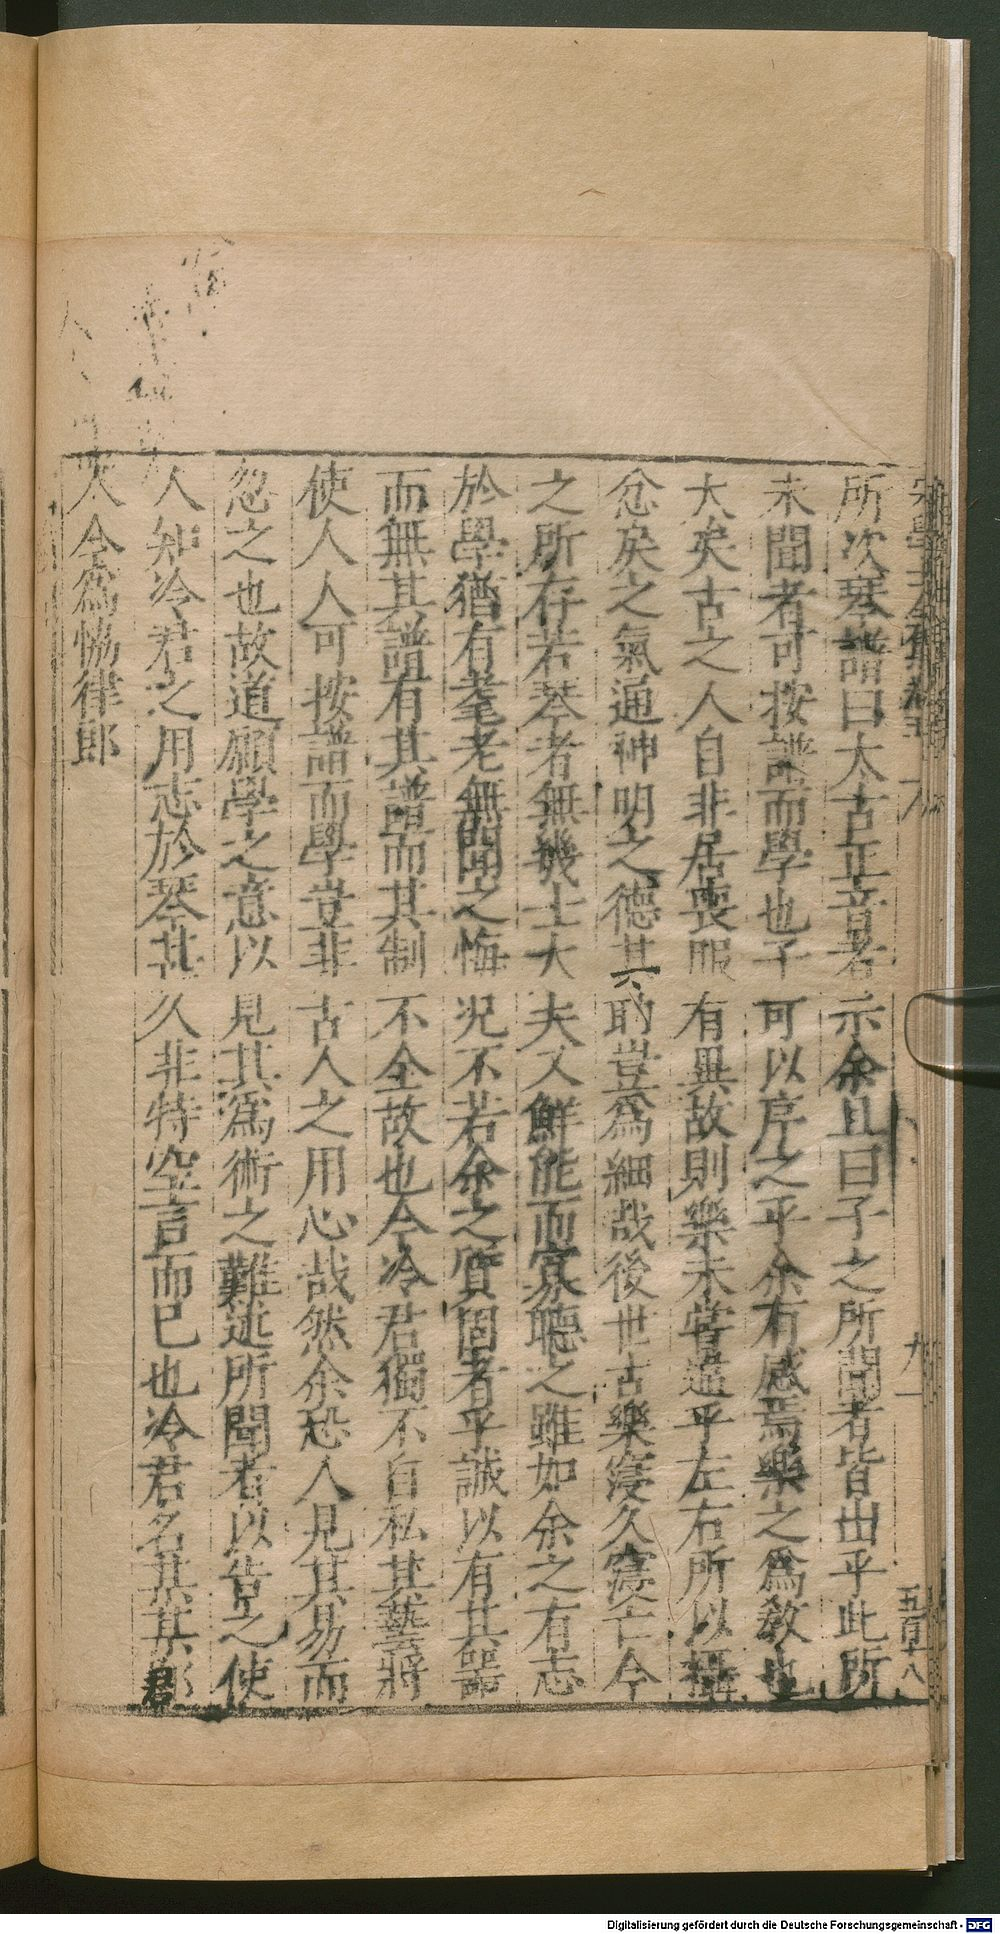 宋學士全集卷五 九 五百十八
所次琴譜曰太古正音者示余且曰子之所聞者皆出乎此所
未聞者可按譜而學也子可以序之乎余有感焉樂之爲敎也
大矣古之人自非居喪服有異故則樂未嘗違乎左右所以攝
忿戾之氣通神明之德其功豈爲細哉後世古樂寖久寖亡今
之所存若琴者無幾士大夫又鮮能而寡聽之雖如余之有志
於學猶有耄老無聞之悔況不若余之質固者乎誠以有其器
而無其譜有其譜而其制不全故也今冷君獨不自私其藝將
使人人可按譜而學豈非古人之用心哉然余恐人見其易而
忽之也故道願學之意以見其爲術之難述所聞者以告之使
人知冷君之用志於琴甚久非特空言而已也冷君名某某郡
人今爲協律郎
Digitalisierung gefördert durch die Deutsche Forschungsgemeinschaft - DFG